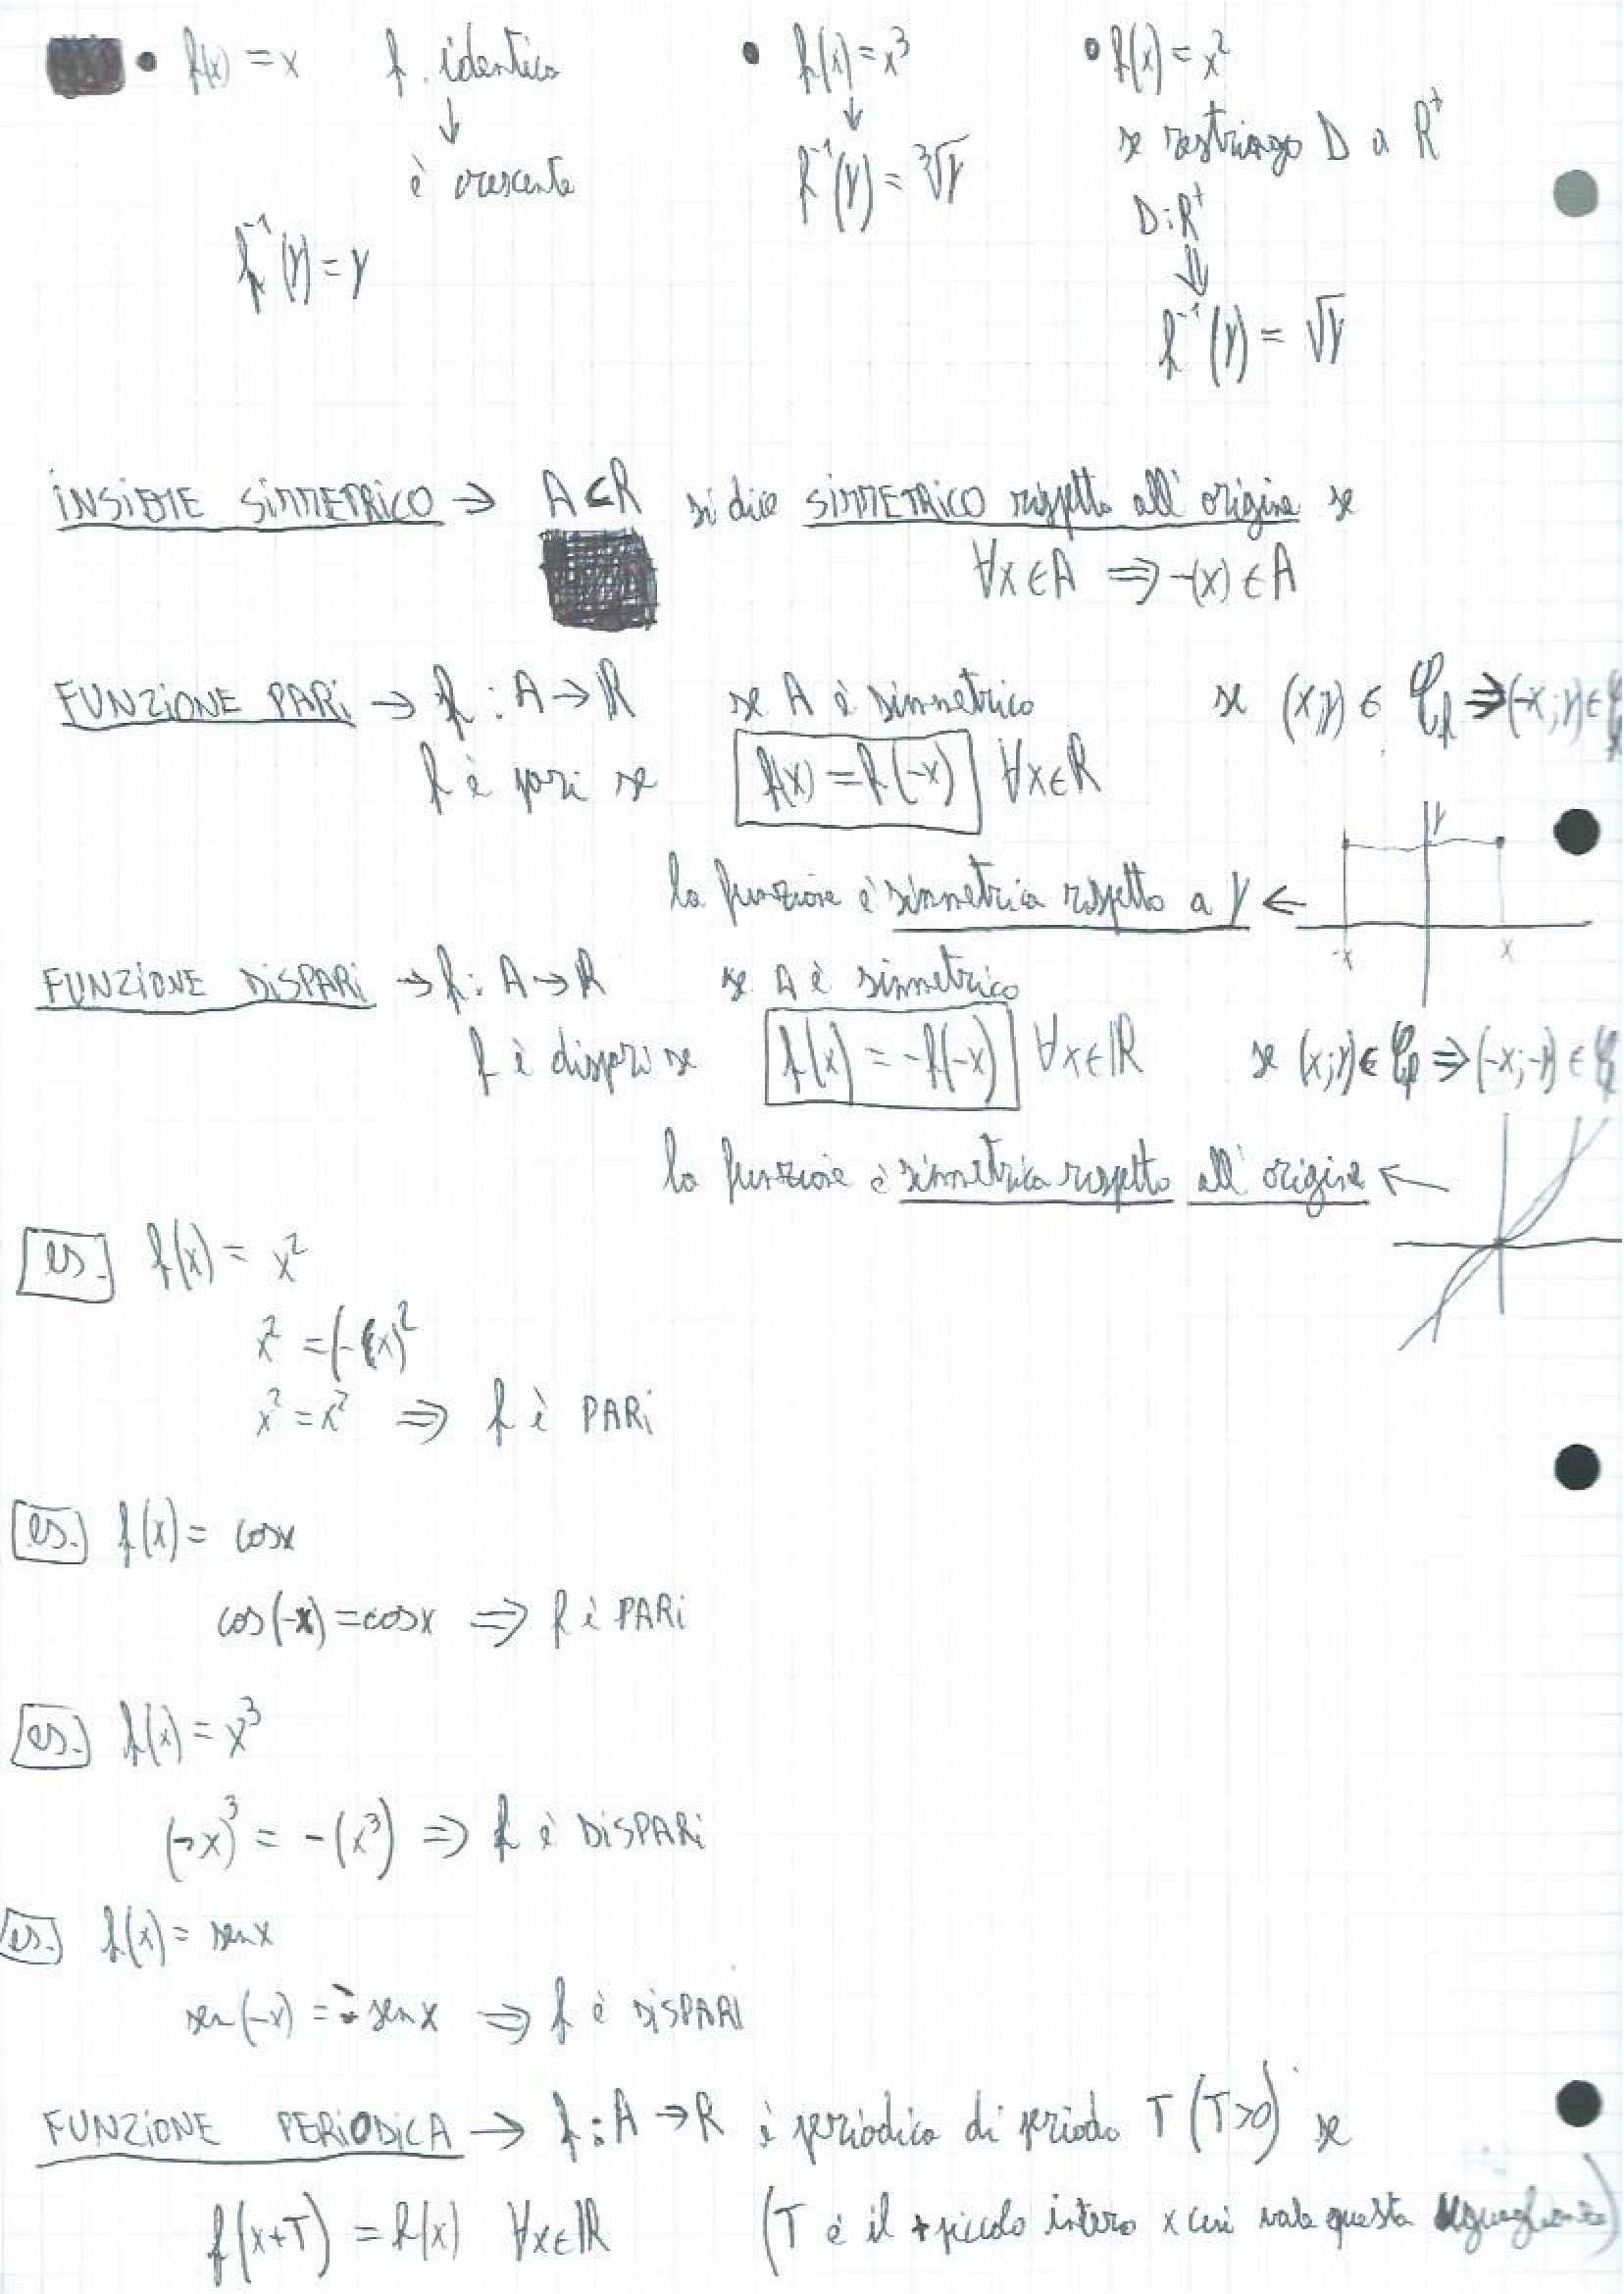 • f(x) = x f. identica • f(x) = x³ • f(x) = x²
↓ ↓ se restringo D a R⁺
è crescente f⁻¹(y) = ³√y D: R⁺
⇓
f⁻¹(y) = y f⁻¹(y) = √y
INSIEME SIMMETRICO → A⊂R si dice SIMMETRICO rispetto all'origine se
∀x∈A ⇒ -(x) ∈ A
FUNZIONE PARI → f : A → R se A è simmetrico se (x;y) ∈ φf ⇒ (-x; y) ∈ φf
f è pari se f(x) = f(-x) ∀x∈R
y
la funzione è simmetrica rispetto a y ←
-x x
FUNZIONE DISPARI → f: A → R se A è simmetrico
f è dispari se f(x) = -f(-x) ∀x∈R se (x;y) ∈ φf ⇒ (-x;-y) ∈ φ
la funzione è simmetrica rispetto all'origine ←
es. f(x) = x²
x² = (-(x)²
x² = x² ⇒ f è PARI
es. f(x) = cosx
cos(-x) = cosx ⇒ f è PARI
es. f(x) = x³
(-x)³ = -(x³) ⇒ f è DISPARI
es. f(x) = senx
sen(-x) = - senx ⇒ f è DISPARI
FUNZIONE PERIODICA → f: A → R è periodica di periodo T (T>0) se
f(x+T) = f(x) ∀x∈R (T è il + piccolo intero x cui vale questa uguaglianza)